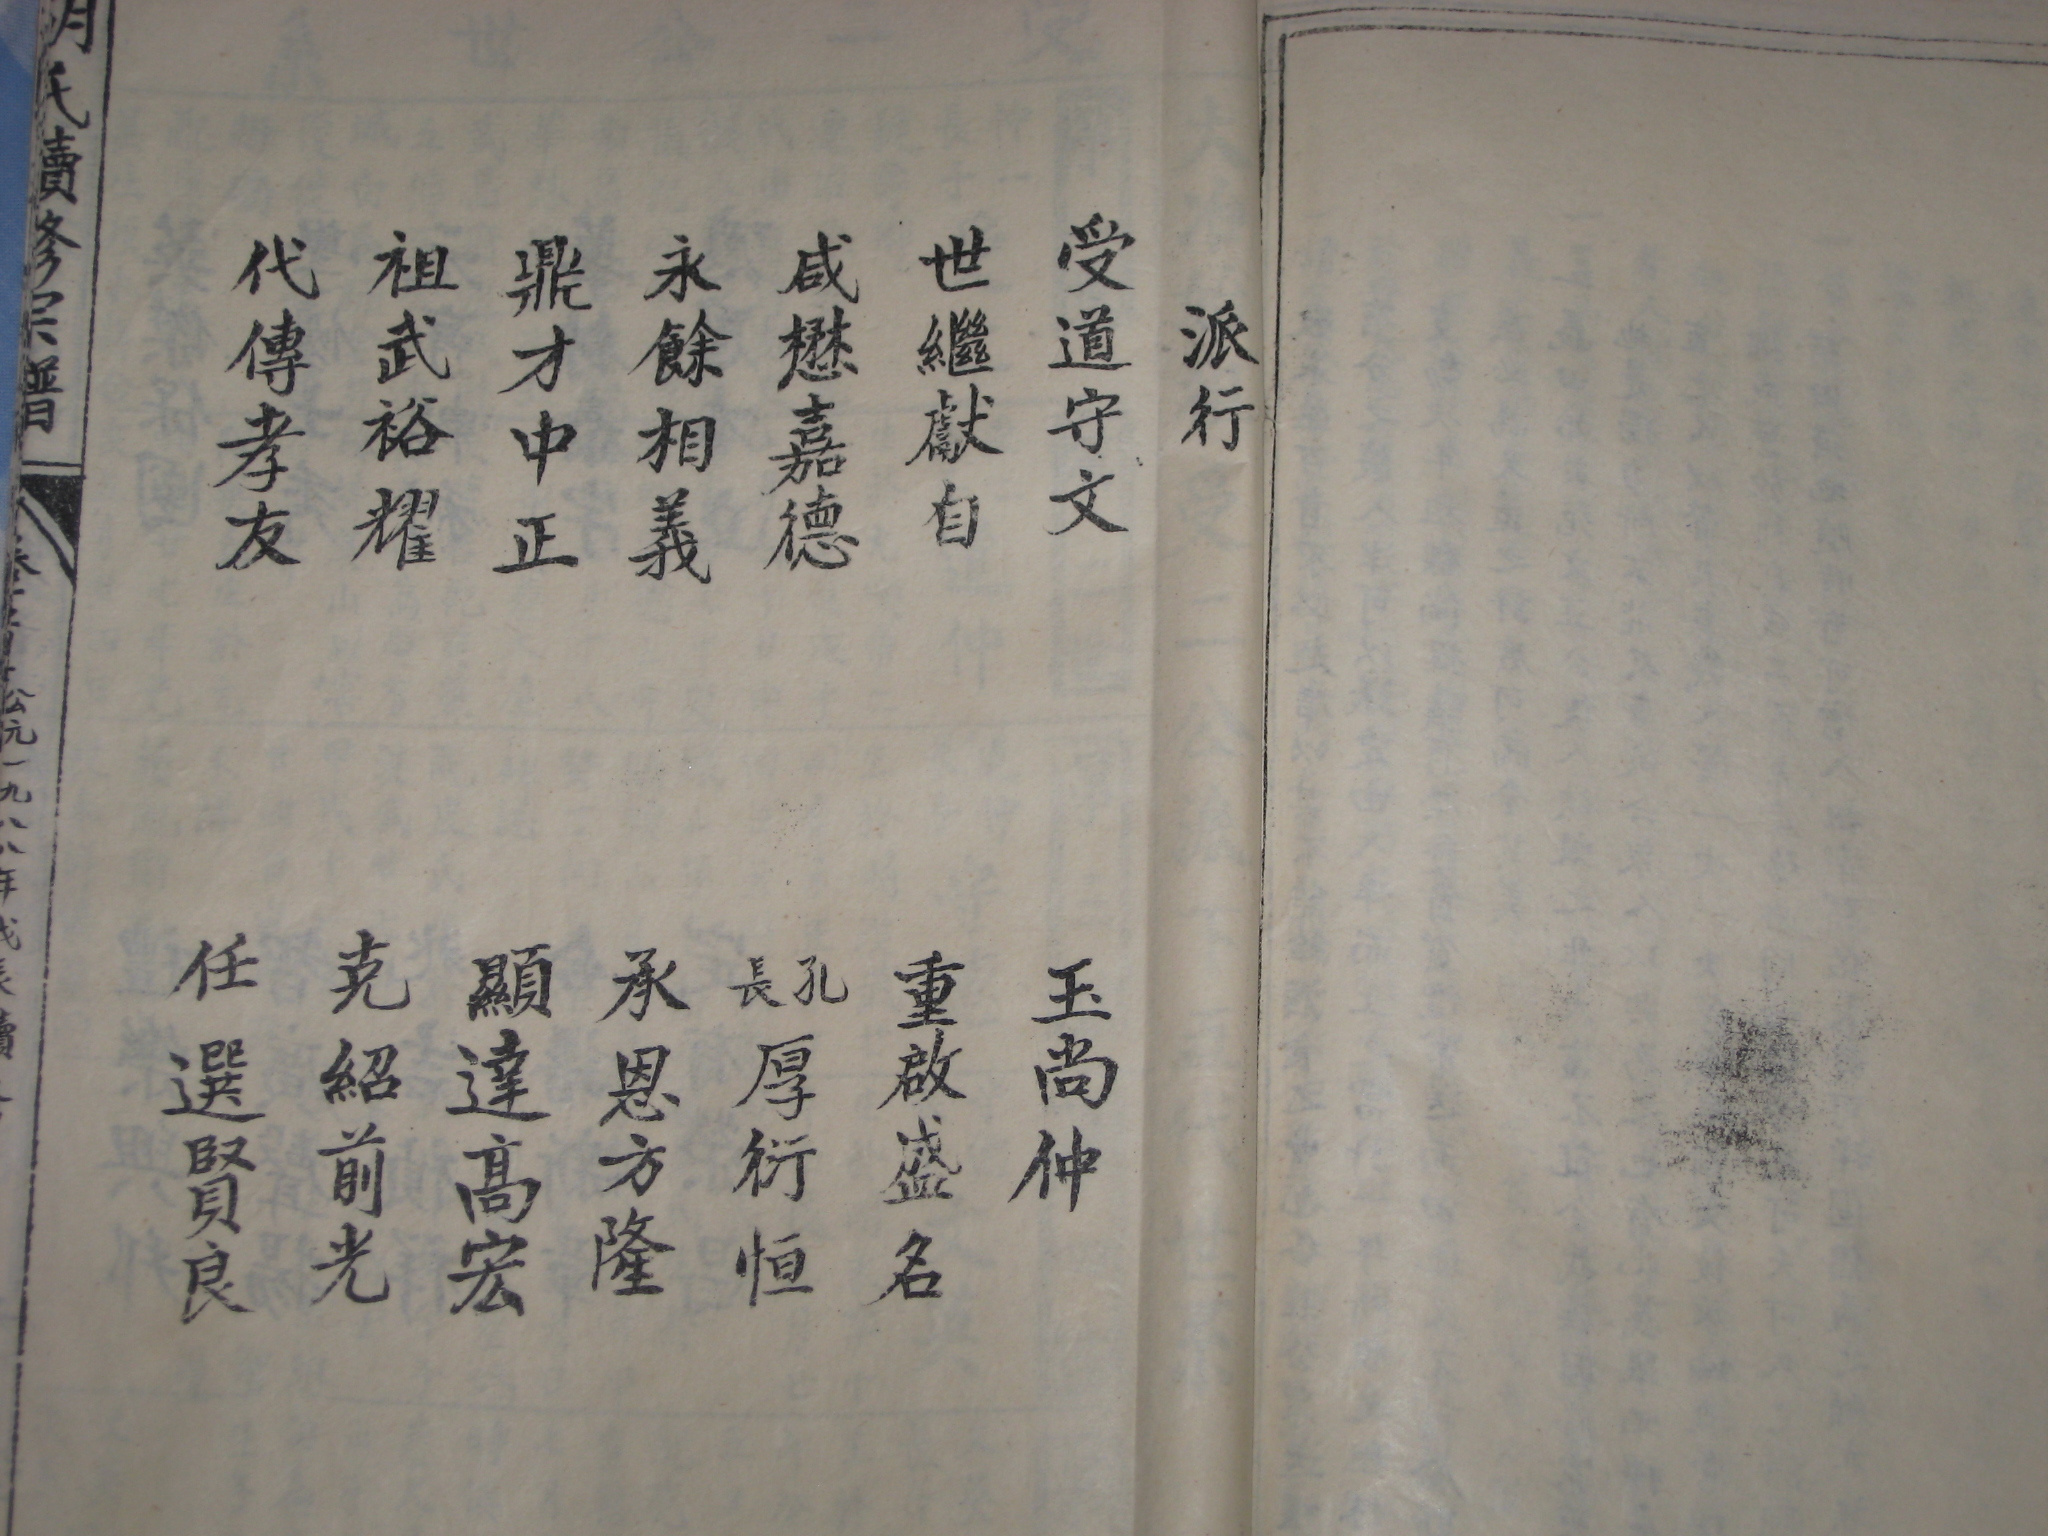 派行
受道守文
玉尚仲
世繼獻自
重啟盛名
咸懋嘉德
孔長厚衍恒
永餘相義
承恩方隆
鼎才中正
顯達高宏
祖武裕耀
克紹前光
代傳孝友
任選賢良
氏續修宗譜
公元一九八八年戊辰續